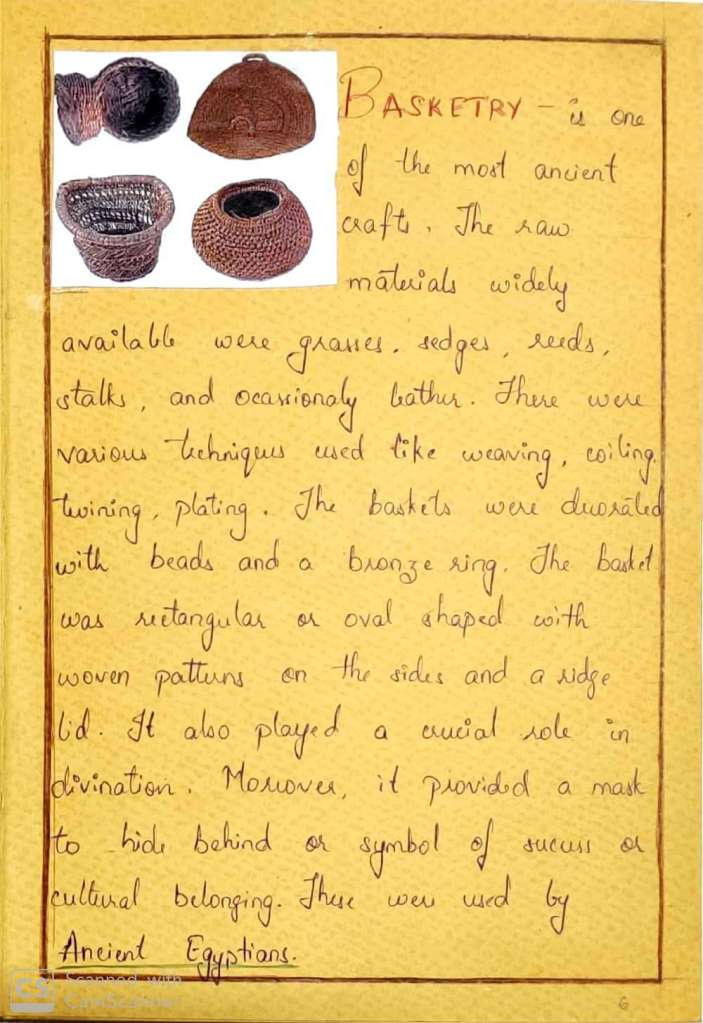 BASKETRY - is one
of the most ancient
crafts. The raw
materials widely
available were grasses, sedges, reeds,
stalks, and ocassionaly leather. There were
various techniques used like weaving, coiling,
twining, plating. The baskets were decorated
with beads and a bronze ring. The basket
was rectangular or oval shaped with
woven patterns on the sides and a ridge
lid. It also played a crucial role in
divination. Moreover, it provided a mask
to hide behind or symbol of success or
cultural belonging. These were used by
Ancient Egyptians.
CS Scanned with
CamScanner
6